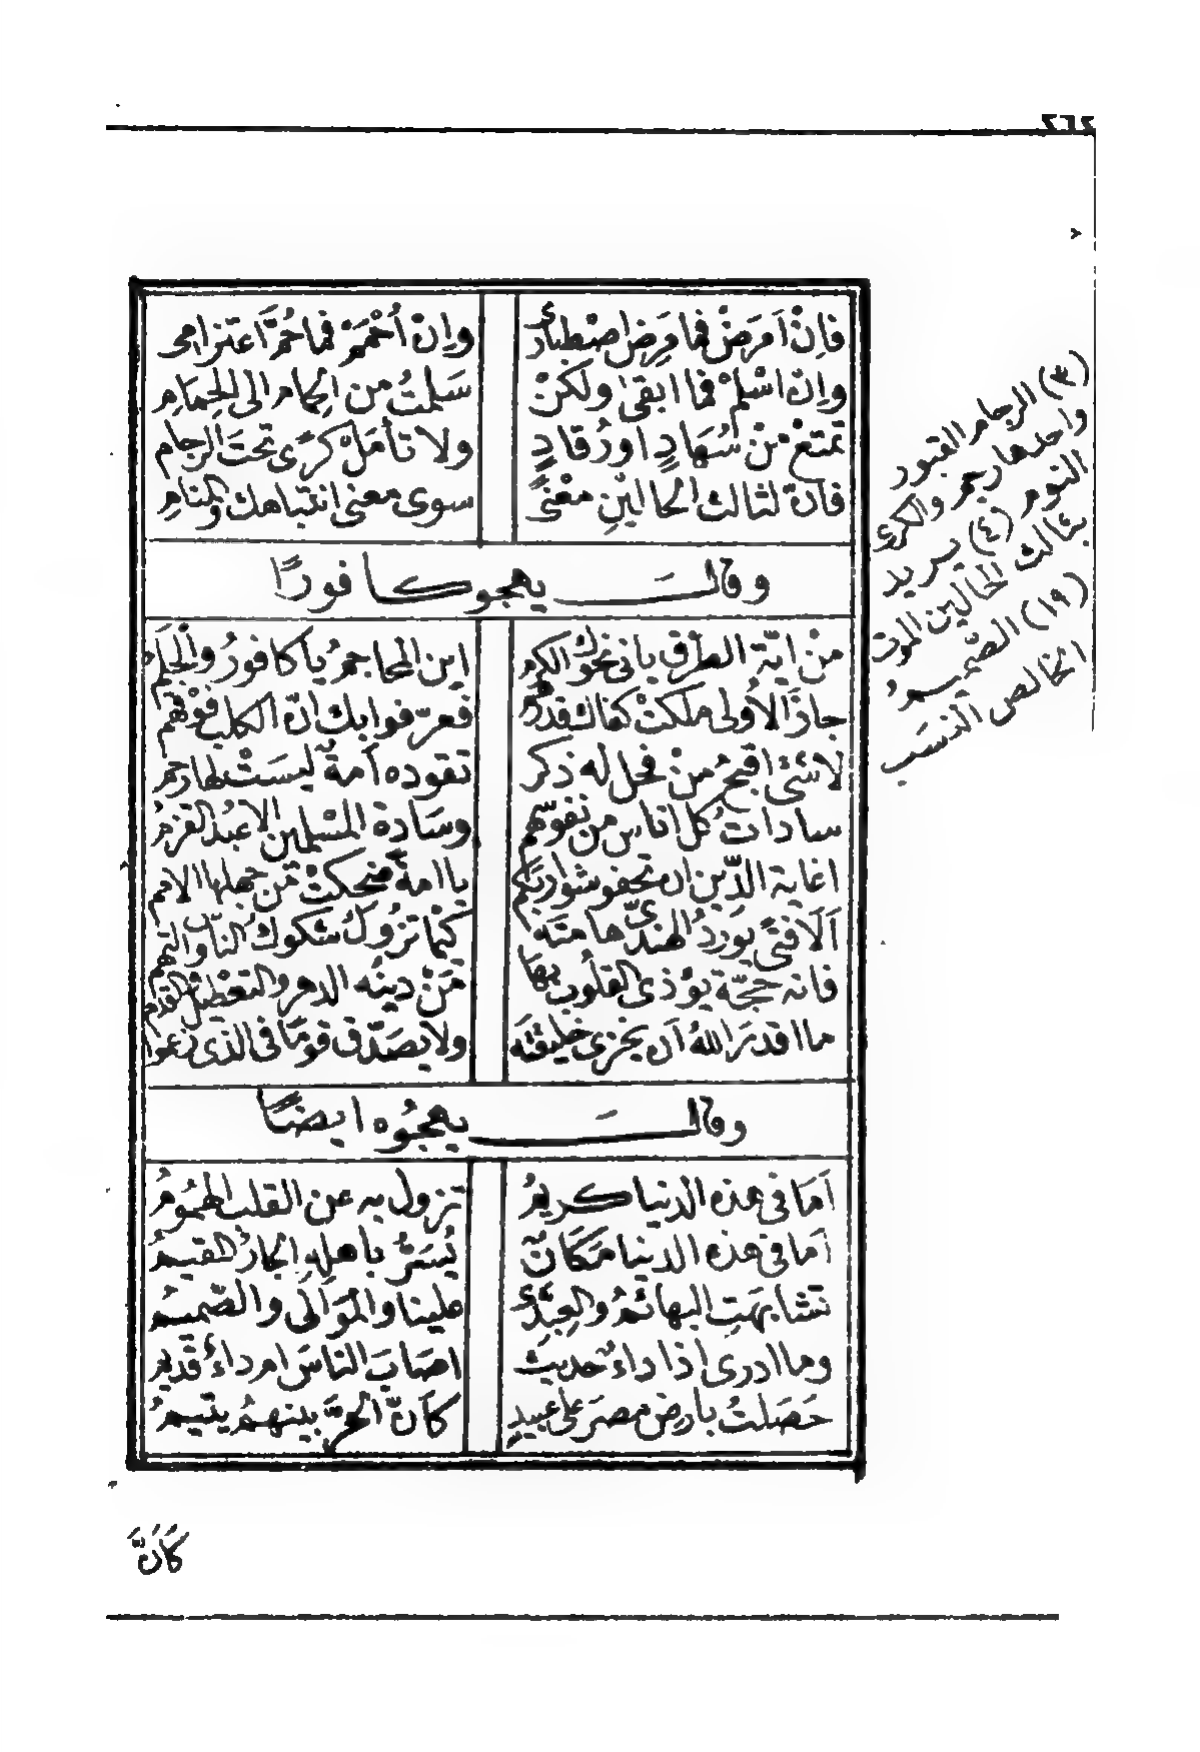 ٢٦٢
فاِنْ اَمرَضْ فما مَرِض اصْطبارى وإِنْ أُحْمَمْ فما حُمَّ اَعتزامى
وإن اسْلَمْ فما ابقىٰ ولكنْ سَلمتُ من الحِمام الى الحِمَامِ
تمتعْ منْ سُهَادٍ اورُقادٍ ولا تأمَلْ كرًى تحتَ الرجام
فانّ لثالث الحاليْنِ معْنًى سوى معنى انتباهك والمنامِ
وقالَ يهجو كافورًا
منْ ايّة الطُرْق يأتى نحوَكَ الكرم اين المحاجمُ يا كافورُ والجَلَم
جازَ الاُولى ملكتْ كفاك قدرهم فعرّفوا بك انّ الكلب فوْقهم
لاشئ اقبحُ منْ فحل له ذكر تقوده أمةٌ ليسَتْ لها رحم
سادات كل اناس من نفوسهم وسَادة المسْلمين الاعبُد القزمُ
اغاية الدّين ان تحفو شواربكم يا امة ضحكتْ منْ جهلها الامم
اَلَا فتًى يوردُ الهندىّ هامتَه كيْما تزُولَ شكوكُ الناس والتهم
فانه حجّة يؤذى القلُوب بهَا مَنْ دينُه الدهر والتعْطيلُ والقِدَم
ما اقدرَ اللهُ اَن يخزى خليقتَه ولا يصَدّق قومًا فى الذى زعموا
وقالَ يهجُوه ايضًا
اَمَا فى هذه الدنيا كريمُ تزول به عن القلب الهُمُومُ
اَما فى هذه الدنيا مَكَانٌ يُسَرُّ باهلِهِ الجارُ المقيمُ
تشابهَتِ البهائمُ والعِبِدَّى علينا والمَوَالَى والصّميمُ
وما ادرى اذا داءٌ حديث اصَابَ الناسَ ام داءٌ قَديمُ
حَصَلتُ بارض مصرَ على عبيدٍ كأنّ الحرَّ بينهمُ يتيمُ
(٣) الرجام القبور
واحدها رجم والكرى
النوم (٤) يريد
بثالث الحالين الموت
(١٩) الصّميمُ
الخالص النسَب
كَانَّ